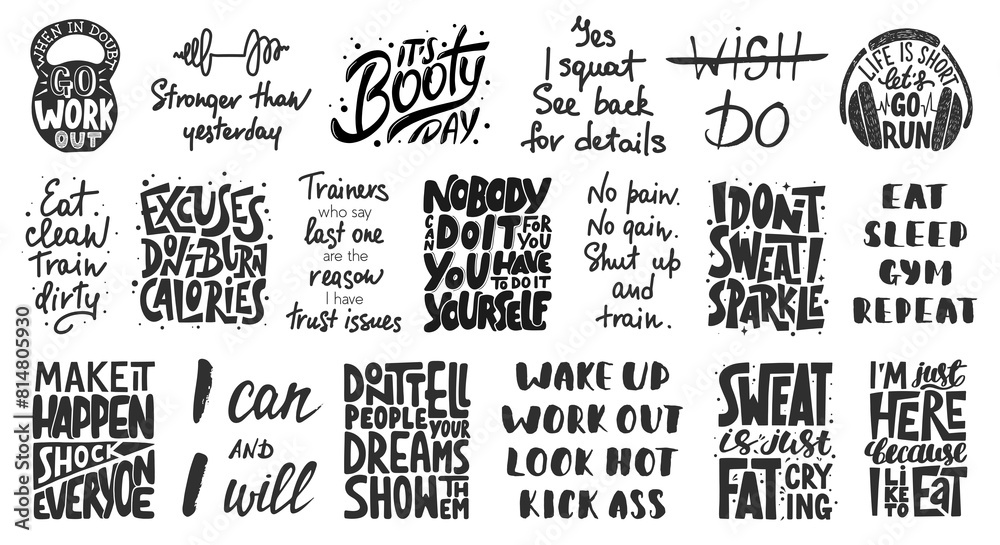 WHEN IN DOUBT
GO
WORK
OUT
Stronger than
yesterday
IT'S
Booty
DAY
Yes
I squat
See back
for details
WISH
DO
LIFE IS SHORT
let's
GO
RUN
Eat
clean
Train
dirty
EXCUSES
DON'T BURN
CALORIES
Trainers
who say
last one
are the
reason
I have
trust issues
NOBODY
CAN DO IT FOR YOU
YOU HAVE TO DO IT
YOURSELF
No pain.
No gain.
Shut up
and
train.
I DON'T
SWEAT I
SPARKLE
EAT
SLEEP
GYM
REPEAT
MAKE IT
HAPPEN
SHOCK
EVERYONE
I can
AND
I will
DON'T TELL
PEOPLE YOUR
DREAMS
SHOW THEM
WAKE UP
WORK OUT
LOOK HOT
KICK ASS
SWEAT
is just
FAT CRYING
I'M just
HERE
because
I LIKE TO EAT
Adobe Stock | #814805930